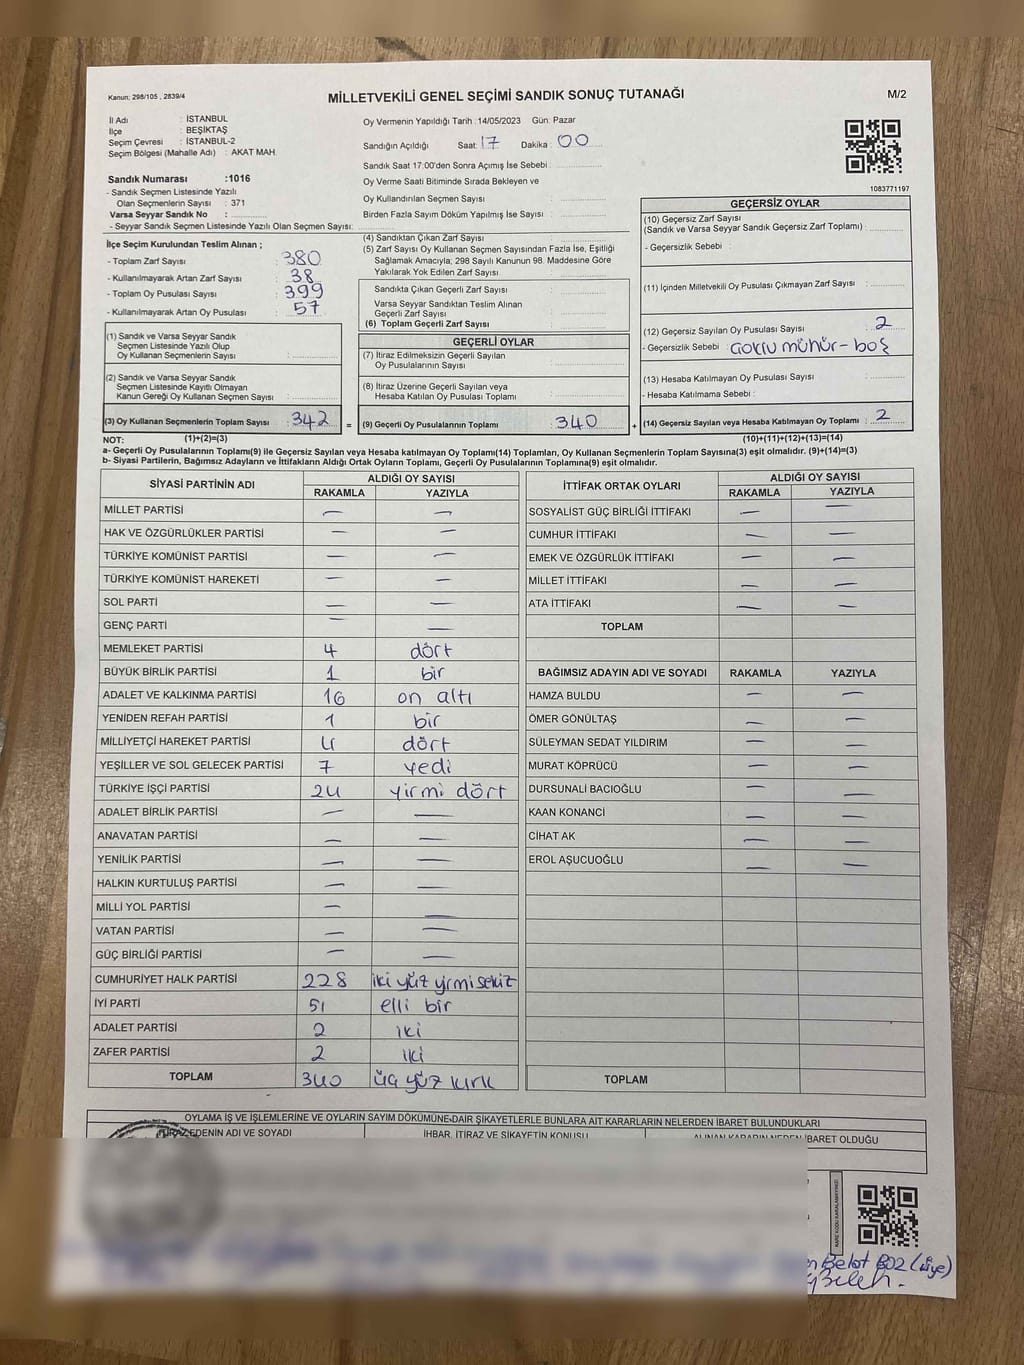 Kanun; 298/105 , 2839/4
MİLLETVEKİLİ GENEL SEÇİMİ SANDIK SONUÇ TUTANAĞI
M/2
İl Adı : İSTANBUL
İlçe : BEŞİKTAŞ
Seçim Çevresi : İSTANBUL-2
Seçim Bölgesi (Mahalle Adı) : AKAT MAH.
Oy Vermenin Yapıldığı Tarih : 14/05/2023 Gün: Pazar
Sandığın Açıldığı Saat: 17 Dakika : 00
Sandık Saat 17:00'den Sonra Açımış İse Sebebi :
Oy Verme Saati Bitiminde Sırada Bekleyen ve
Oy Kullandırılan Seçmen Sayısı :
Birden Fazla Sayım Döküm Yapılmış İse Sayısı :
1083771197
Sandık Numarası :1016
- Sandık Seçmen Listesinde Yazılı
Olan Seçmenlerin Sayısı : 371
Varsa Seyyar Sandık No :
- Seyyar Sandık Seçmen Listesinde Yazılı Olan Seçmen Sayısı:
İlçe Seçim Kurulundan Teslim Alınan ;
- Toplam Zarf Sayısı : 380
- Kullanılmayarak Artan Zarf Sayısı : 38
- Toplam Oy Pusulası Sayısı : 399
- Kullanılmayarak Artan Oy Pusulası : 57
(1) Sandık ve Varsa Seyyar Sandık
Seçmen Listesinde Yazılı Olup
Oy Kullanan Seçmenlerin Sayısı :
(2) Sandık ve Varsa Seyyar Sandık
Seçmen Listesinde Kayıtlı Olmayan
Kanun Gereği Oy Kullanan Seçmen Sayısı :
(3) Oy Kullanan Seçmenlerin Toplam Sayısı : 342
(4) Sandıktan Çıkan Zarf Sayısı :
(5) Zarf Sayısı Oy Kullanan Seçmen Sayısından Fazla İse, Eşitliği
Sağlamak Amacıyla; 298 Sayılı Kanunun 98. Maddesine Göre
Yakılarak Yok Edilen Zarf Sayısı :
Sandıkta Çıkan Geçerli Zarf Sayısı :
Varsa Seyyar Sandıktan Teslim Alınan
Geçerli Zarf Sayısı :
(6) Toplam Geçerli Zarf Sayısı :
GEÇERLİ OYLAR
(7) İtiraz Edilmeksizin Geçerli Sayılan
Oy Pusulalarının Sayısı :
(8) İtiraz Üzerine Geçerli Sayılan veya
Hesaba Katılan Oy Pusulası Toplamı :
= (9) Geçerli Oy Pusulalarının Toplamı : 340
GEÇERSİZ OYLAR
(10) Geçersiz Zarf Sayısı
(Sandık ve Varsa Seyyar Sandık Geçersiz Zarf Toplamı) :
- Geçersizlik Sebebi :
(11) İçinden Milletvekili Oy Pusulası Çıkmayan Zarf Sayısı :
(12) Geçersiz Sayılan Oy Pusulası Sayısı : 2
- Geçersizlik Sebebi : mühür-boş
(13) Hesaba Katılmayan Oy Pusulası Sayısı :
- Hesaba Katılmama Sebebi :
+ (14) Geçersiz Sayılan veya Hesaba Katılmayan Oy Toplamı : 2
NOT: (1)+(2)=(3)
(10)+(11)+(12)+(13)=(14)
a- Geçerli Oy Pusulalarının Toplamı(9) ile Geçersiz Sayılan veya Hesaba Katılmayan Oy Toplamı(14) Toplamları, Oy Kullanan Seçmenlerin Toplam Sayısına(3) eşit olmalıdır. (9)+(14)=(3)
b- Siyasi Partilerin, Bağımsız Adayların ve İttifakların Aldığı Ortak Oyların Toplamı, Geçerli Oy Pusulalarının Toplamına(9) eşit olmalıdır.
SİYASİ PARTİNİN ADI ALDIĞI OY SAYISI
RAKAMLA YAZIYLA
MİLLET PARTİSİ — —
HAK VE ÖZGÜRLÜKLER PARTİSİ — —
TÜRKİYE KOMÜNİST PARTİSİ — —
TÜRKİYE KOMÜNİST HAREKETİ — —
SOL PARTİ — —
GENÇ PARTİ — —
MEMLEKET PARTİSİ 4 dört
BÜYÜK BİRLİK PARTİSİ 1 bir
ADALET VE KALKINMA PARTİSİ 16 on altı
YENİDEN REFAH PARTİSİ 1 bir
MİLLİYETÇİ HAREKET PARTİSİ 4 dört
YEŞİLLER VE SOL GELECEK PARTİSİ 7 yedi
TÜRKİYE İŞÇİ PARTİSİ 24 yirmi dört
ADALET BİRLİK PARTİSİ — —
ANAVATAN PARTİSİ — —
YENİLİK PARTİSİ — —
HALKIN KURTULUŞ PARTİSİ — —
MİLLİ YOL PARTİSİ — —
VATAN PARTİSİ — —
GÜÇ BİRLİĞİ PARTİSİ — —
CUMHURİYET HALK PARTİSİ 228 iki yüz yirmi sekiz
İYİ PARTİ 51 elli bir
ADALET PARTİSİ 2 iki
ZAFER PARTİSİ 2 iki
TOPLAM 340 üç yüz kırk
İTTİFAK ORTAK OYLARI ALDIĞI OY SAYISI
RAKAMLA YAZIYLA
SOSYALİST GÜÇ BİRLİĞİ İTTİFAKI — —
CUMHUR İTTİFAKI — —
EMEK VE ÖZGÜRLÜK İTTİFAKI — —
MİLLET İTTİFAKI — —
ATA İTTİFAKI — —
TOPLAM
BAĞIMSIZ ADAYIN ADI VE SOYADI RAKAMLA YAZIYLA
HAMZA BULDU — —
ÖMER GÖNÜLTAŞ — —
SÜLEYMAN SEDAT YILDIRIM — —
MURAT KÖPRÜCÜ — —
DURSUNALİ BACIOĞLU — —
KAAN KONANCİ — —
CİHAT AK — —
EROL AŞUCUOĞLU — —
TOPLAM
OYLAMA İŞ VE İŞLEMLERİNE VE OYLARIN SAYIM DÖKÜMÜNE DAİR ŞİKAYETLERLE BUNLARA AİT KARARLARIN NELERDEN İBARET BULUNDUKLARI
İTİRAZ EDENİN ADI VE SOYADI İHBAR, İTİRAZ VE ŞİKAYETİN KONUSU ALINAN KARARIN NEDEN İBARET OLDUĞU
(üye)